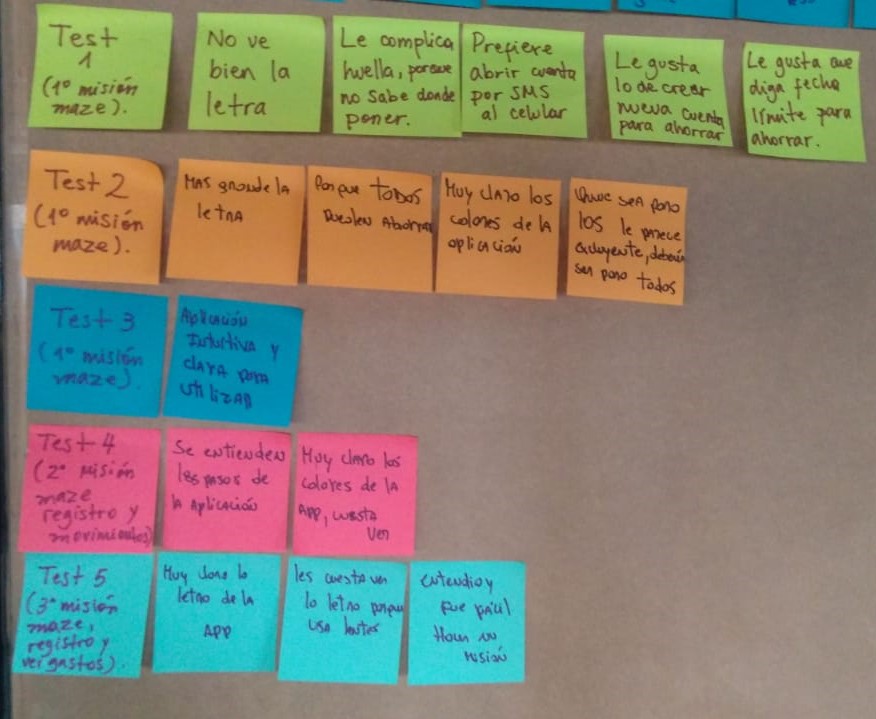 Test
1
(1º misión
maze).
No ve
bien la
letra
Le complica
huella, porque
no sabe donde
poner.
Prefiere
abrir cuenta
por SMS
al celular
Le gusta
lo de crear
nueva cuenta
para ahorrar
Le gusta que
diga fecha
límite para
ahorrar.
Test 2
(1º misión
maze).
Mas grande la
letra
Porque TODOS
Pueden Ahorrar
Muy claro los
colores de la
aplicación
sea para
los le parece
excluyente, debería
ser para todos
Test 3
(1º misión
maze).
Aplicación
Intuitiva y
clara para
utilizar
Test 4
(2º misión
maze
registro y
movimientos)
Se entienden
los pasos de
la Aplicación
Muy claro los
colores de la
App, cuesta
ver
Test 5
(3º misión
maze,
registro y
ver gastos).
Muy claro la
letra de la
APP
les cuesta ver
la letra porque
usa lentes
entendio y
fue facil
su
misión